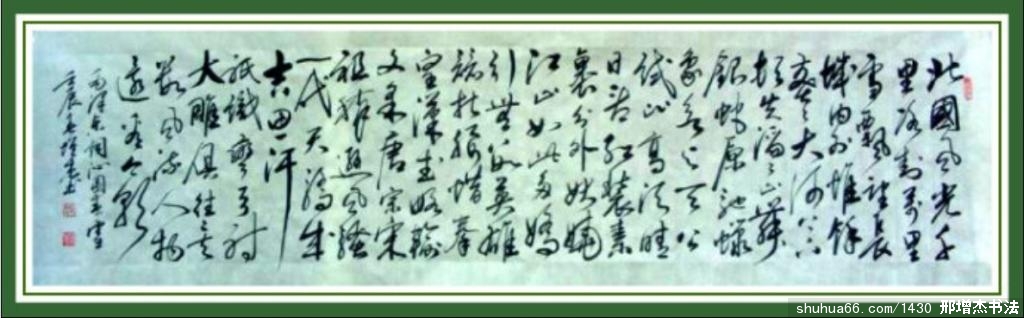 北國風光千
里冰封萬里
雪飄望長
城内外惟餘
莽莽大河上下
頓失滔滔山舞
銀蛇原馳蠟
象欲与天公
試比高須晴
日看紅裝素
裹分外妖嬈
江山如此多嬌
引無數英雄
競折腰惜秦
皇漢武略輸
文采唐宗宋
祖稍遜風騷
一代天驕成
吉思汗
祇識彎弓射
大雕俱往矣
數風流人物
還看今朝
毛澤東詞沁園春雪
壬辰春增杰書
shuhua66.com/1430 邢增杰书法